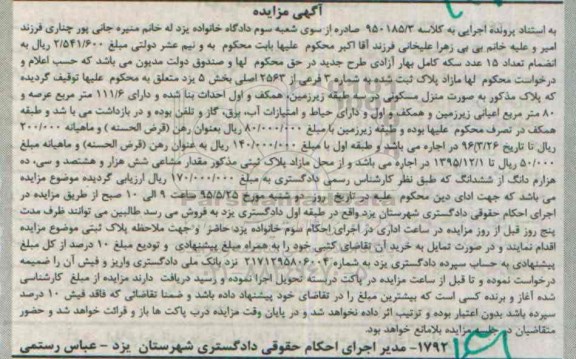 آگهی مزایده
به استناد پرونده اجرایی به کلاسه ۹۵۰۱۸۵/۳ صادره از سوی شعبه سوم دادگاه خانواده یزد له خانم منیره جانی پور چناری فرزند
امیر و علیه خانم بی بی زهرا علیخانی فرزند آقا اکبر محکوم علیها بابت محکوم به و نیم عشر دولتی مبلغ ۲/۵۴۱/۶۰۰ ریال به
انضمام تعداد ۱۵ عدد سکه کامل بهار آزادی طرح جدید در حق محکوم لها و صندوق دولت مدیون می باشد که حسب اعلام و
درخواست محکوم لها مازاد پلاک ثبت شده به شماره ۳ فرعی از ۲۵۶۳ اصلی بخش ۵ یزد متعلق به محکوم علیها توقیف گردیده
که پلاک مذکور به صورت منزل مسکونی در سه طبقه زیرزمین، همکف و اول احداث بنا شده و دارای ۱۱۱/۶ متر مربع عرصه و
۸۰ متر مربع اعیانی زیرزمین و همکف و اول و دارای حیاط و امتیازات آب، برق، گاز و تلفن بوده و در بازداشت می با شد و طبقه
همکف در تصرف محکوم علیها بوده و طبقه زیرزمین با مبلغ ۸۰/۰۰۰/۰۰۰ ریال بعنوان رهن (قرض الحسنه) و ماهیانه ۲۰۰/۰۰۰
ریال تا تاریخ ۹۶/۳/۲۶ در اجاره می باشد و طبقه اول با مبلغ ۱۴۰/۰۰۰/۰۰۰ ریال به عنوان رهن (قرض الحسنه) و ماهیانه مبلغ
۵۰/۰۰۰ ریال تا ۱۳۹۵/۱۲/۱ در اجاره می باشد و از محل مازاد پلاک ثبتی مذکور مقدار مشاعی شش هزار و هشتصد و سی، ده
هزارم دانگ از ششدانگ که طبق نظر کارشناس رسمی دادگستری به مبلغ ۱۷۰/۰۰۰/۰۰۰ ریال ارزیابی گردیده موضوع مزایده
می باشد که جهت ادای دین محکوم علیه در تاریخ روز دو شنبه مورخ ۹۵/۵/۲۵ ساعت ۹ الی ۱۰ صبح از طریق مزایده در
اجرای احکام حقوقی دادگستری شهرستان یزد واقع در طبقه اول دادگستری یزد به فروش می رسد طالبین می توانند ظرف مدت
پنج روز قبل از روز مزایده در ساعت اداری در اجرای احکام سوم خانواده یزد حاضر و جهت ملاحظه پلاک ثبتی موضوع مزایده
اقدام نمایند و در صورت تمایل به خرید آن تقاضای کتبی خود را به همراه مبلغ پیشنهادی و تودیع مبلغ ۱۰ درصد از کل مبلغ
پیشنهادی به حساب سپرده دادگستری یزد به شماره ۲۱۷۱۲۹۵۸۰۶۰۰۴ نزد بانک ملی دادگستری واریز و فیش آن را ضمیمه
درخواست نموده و تا قبل از ساعت مزایده در پاکت دربسته تحویل اجرا نموده و رسید دریافت دارند مزایده از مبلغ کارشناسی
شده آغاز و برنده کسی است که بیشترین مبلغ را در تقاضای خود پیشنهاد داده باشد و ضمنا تقاضائی که فاقد فیش ۱۰ درصد
سپرده باشد بدون اعتبار بوده و ترتیب اثر داده نخواهد شد و در پایان وقت مزایده درب پاکت ها باز و قرائت خواهد شد و حضور
متقاضیان در جلسه مزایده بلامانع خواهد بود.
۱۷۹۲- مدیر اجرای احکام حقوقی دادگستری شهرستان یزد - عباس رستمی